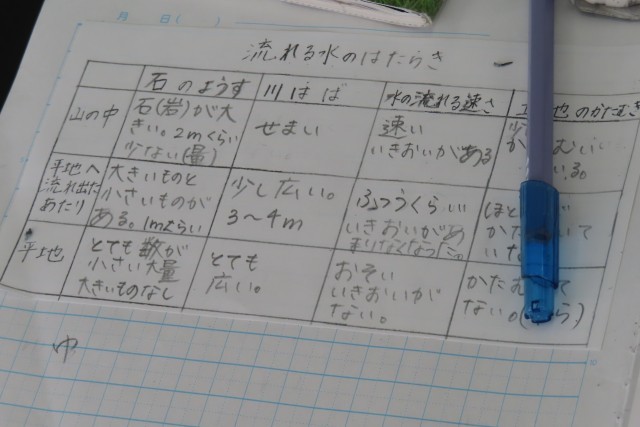 月 日( )
流れる水のはたらき
石のようす
川はば
水の流れる速さ
地のかたむき
山の中
石(岩)が大
きい。2mくらい
少ない(量)
せまい
速い
いきおいがある
平地へ
流れ出た
あたり
大きいものと
小さいものが
ある。1mくらい
少し広い。
3〜4m
ふつうくらい
いきおいがあ
まりなくなった。
ほと
かた いて
いな
平地
とても数が
小さい大量
大きいものなし
とても
広い。
おそい
いきおいが
ない。
かたむ て
ない。( ら)
中